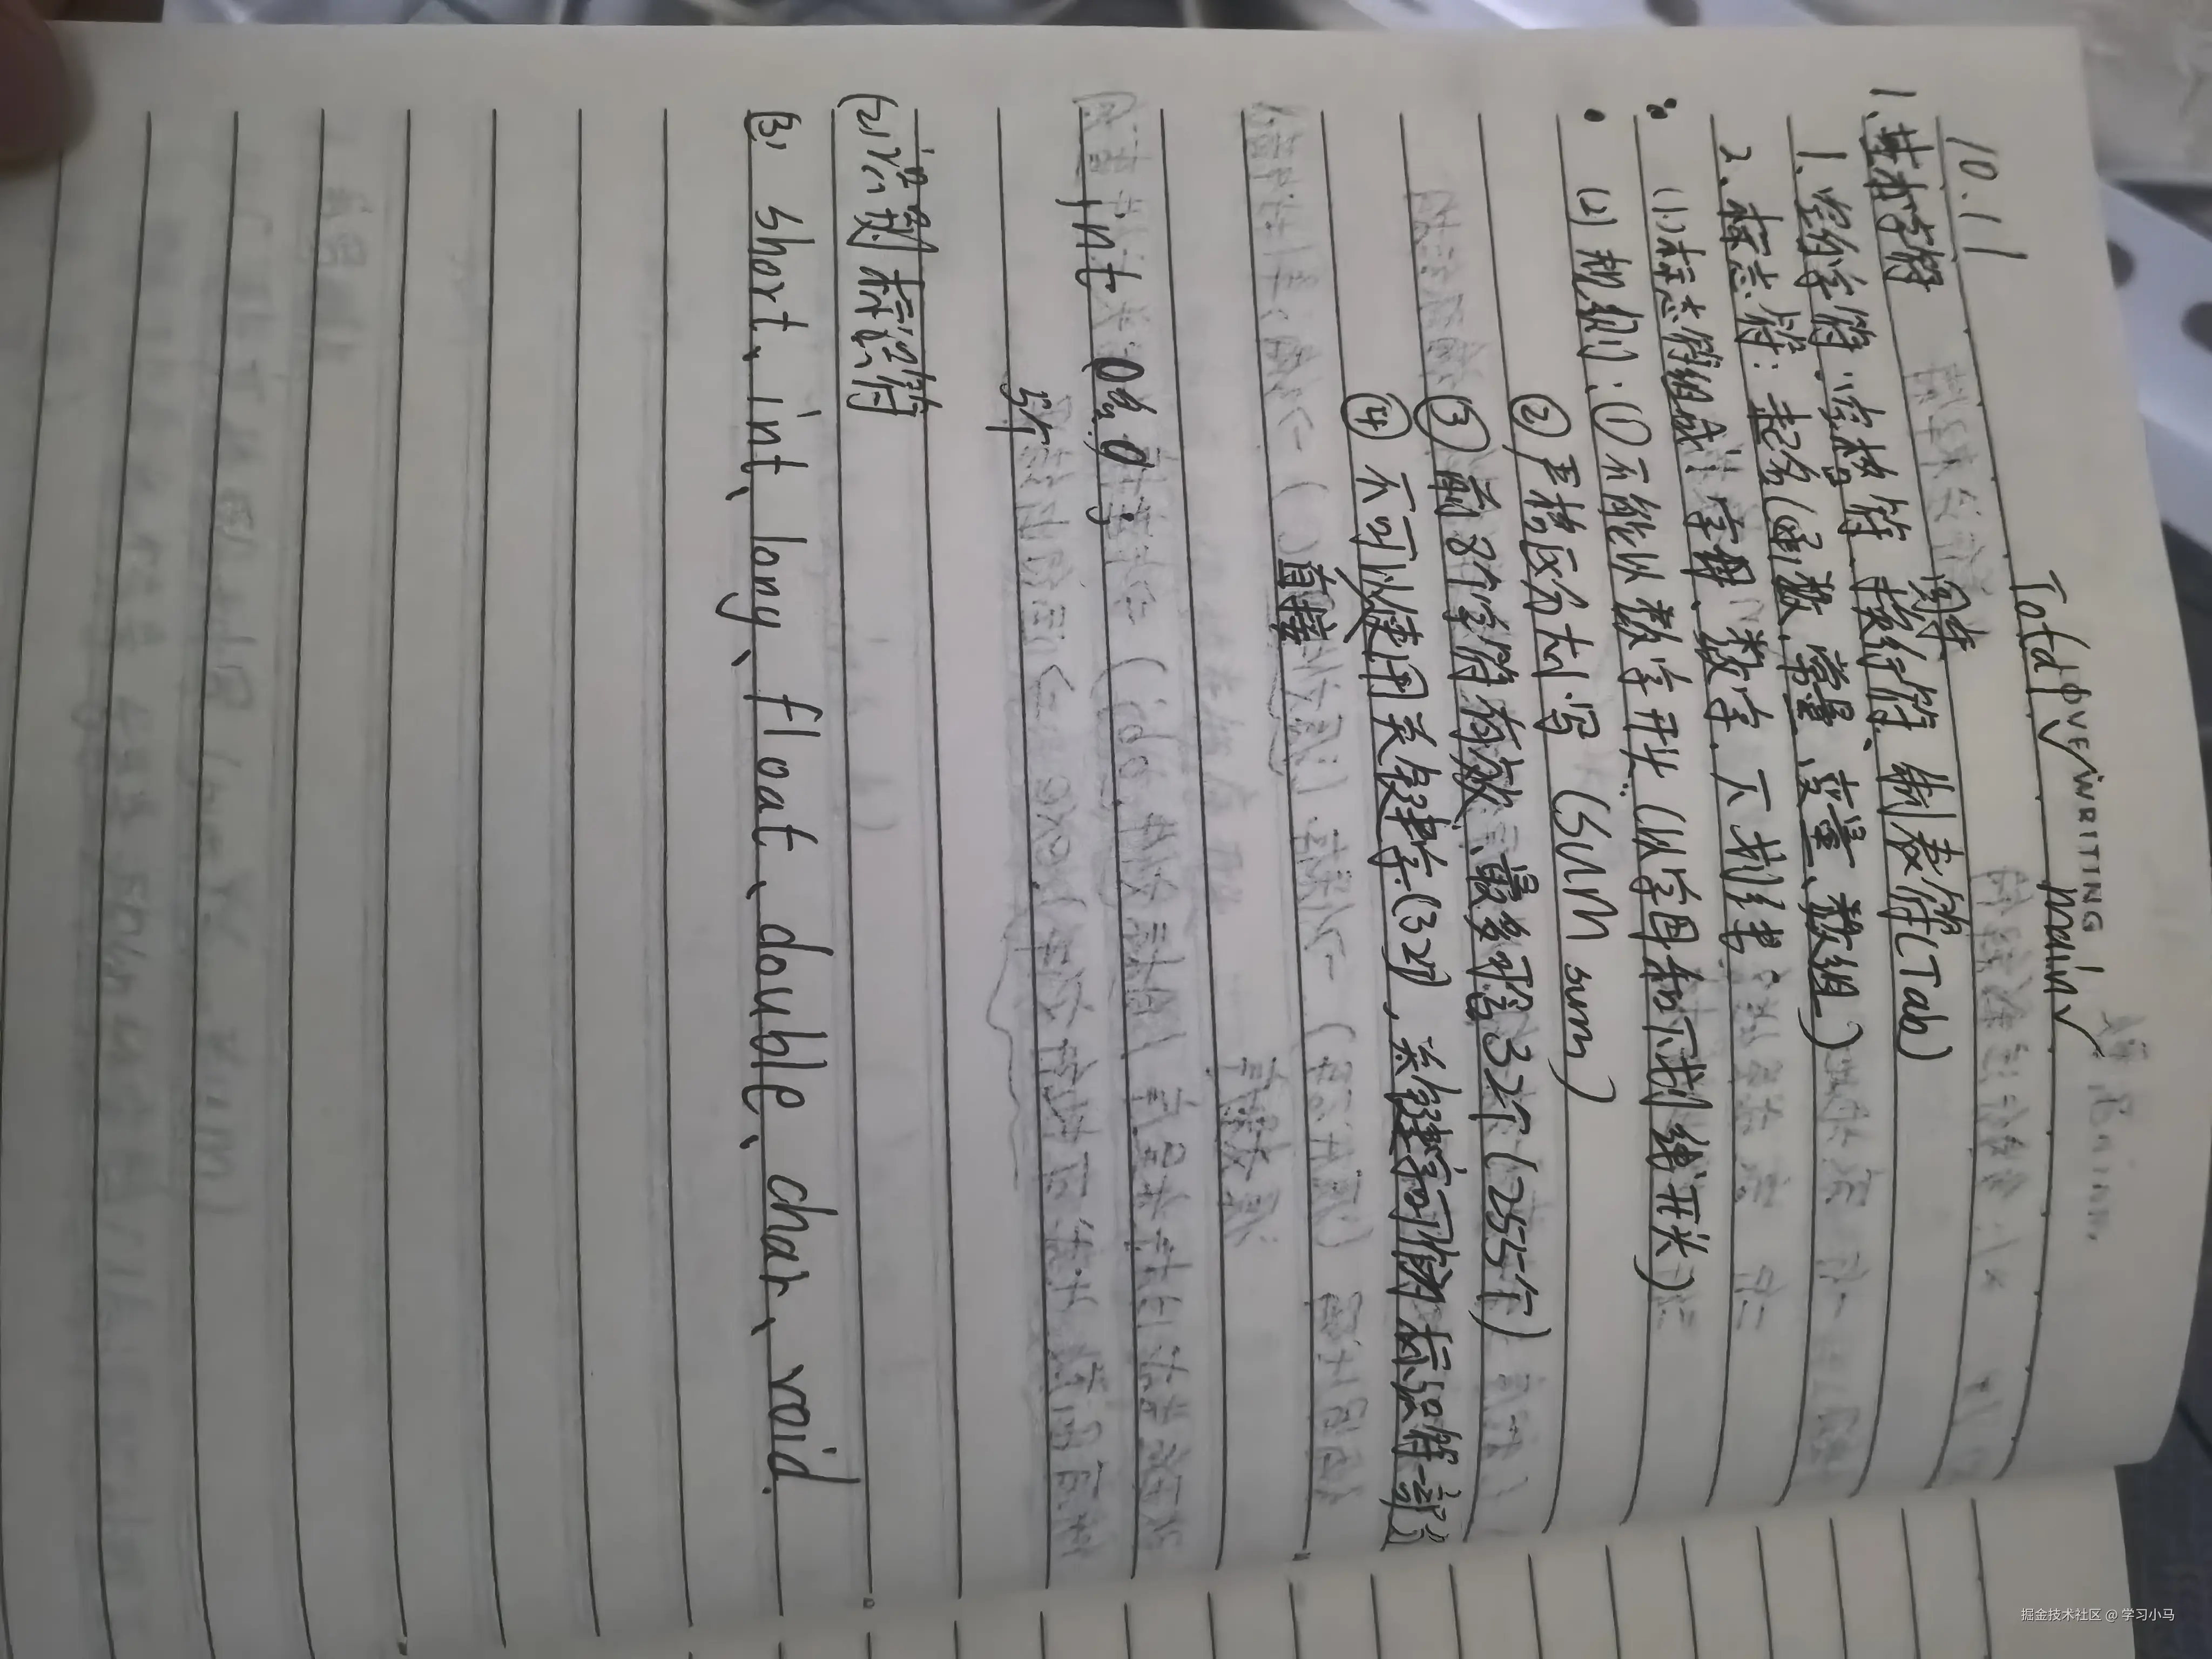 LOVE WRITING
Total main
10.11
1、基本字符
间隔
1、空白字符：空格符、换行符、制表符(Tab)
2、标志符：起名(函数、常量、变量、数组)
(1)标志符组成：字母、数字、下划线
(2)规则：①不能以数字开头(以字母和下划线开头)
②严格区分大小写 (SUM sum)
③前8个字符有效，最多可写32个(255个)
④不可以使用关键字(32个)，关键字可做标识符一部分
直接
int a_a;
5个
(2)识别标识符
(3) short、int、long、float、double、char、void.
掘金技术社区 @ 学习小马